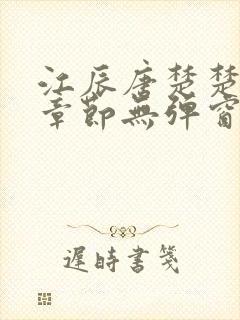 江辰唐楚楚
章節無彈窗
遲時書箋